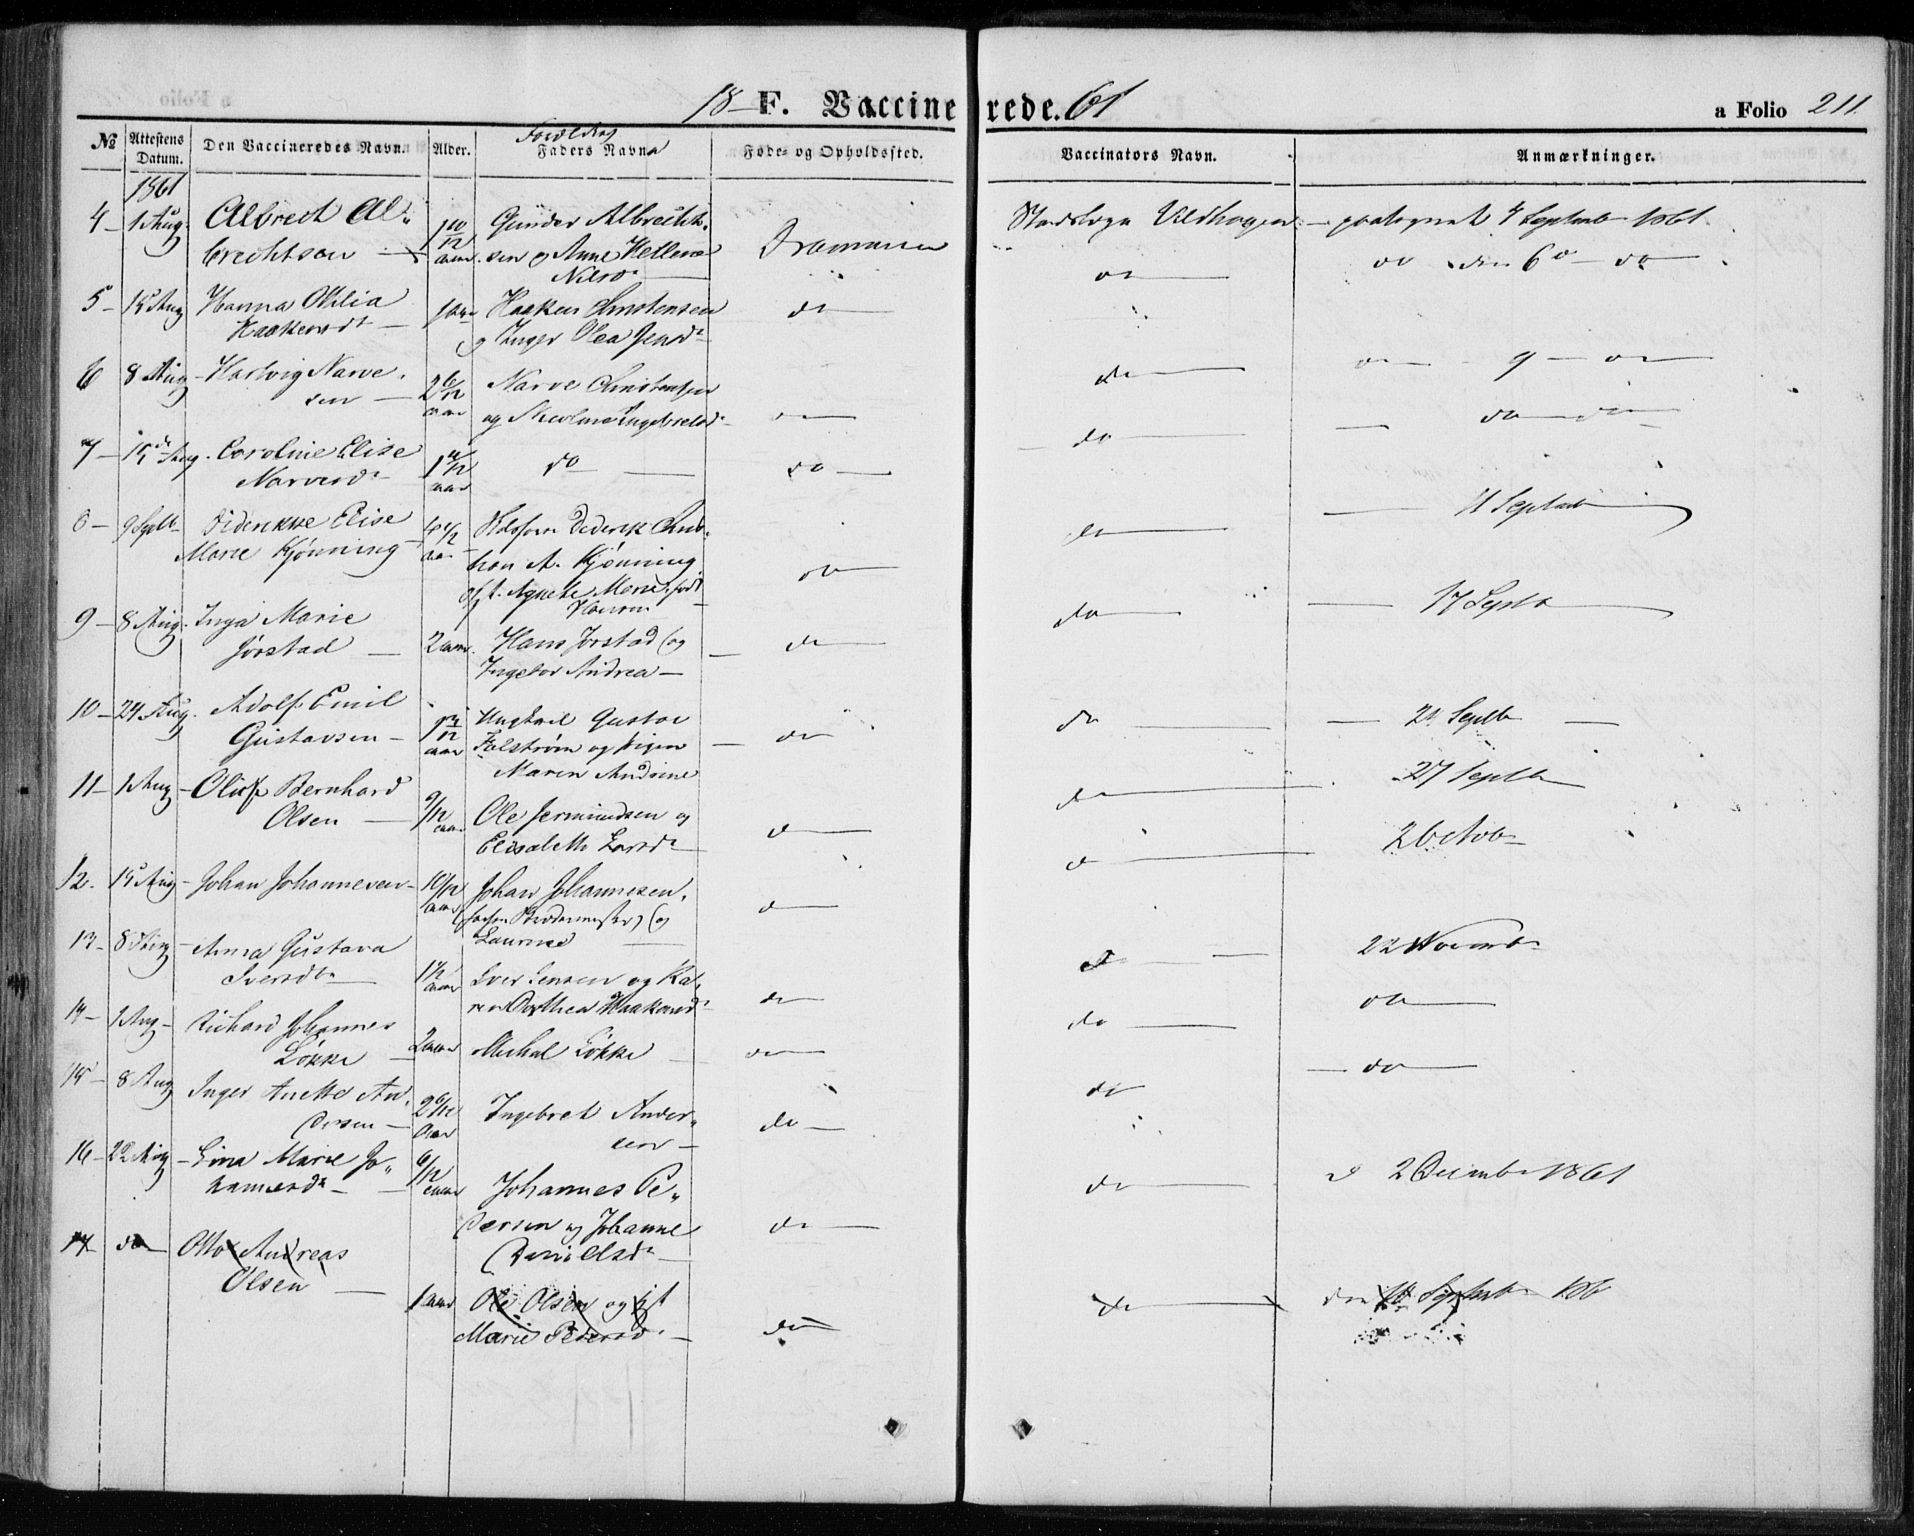 18 F. Vaccinerede. 61
a Folio 211
№ Attestens Datum. Den Vaccineredes Navn. Alder. Forældres Faders Navn Føde- og Opholdssted. Vaccinators Navn. Anmærkninger.
1861
4 - 1 Aug. Albrect Al-
brechtsen - 1 10/12 aar Gunder Albrecht-
sen og Anne Hellene
Nilsd. Drammen Vildhagen 4 Septb 1861.
5 - 15 Aug Hanna Otilia
Haakensdr - 1 aar Haaken Christensen
og Inger Olea Jensdr do do do den 6 do
6 8 Aug - Hartvig Narve-
sen - 2 6/12 aar Narve Christensen
og Nicoline Ingebretsd. do do do 9 do
7 - 15 Aug. Caroline Elise
Narvesdr 1 aar do do do do
8 - 9 Septb Diderikke Elise
Marie Kjønning Diderik
A. Kjønning
Agnethe Marie født
do do 11 Septemb
9 - 8 Aug. Inga Marie
Jørstad - 2 aar. Hans Jørstad og
Ingebor Andrea - do do 17 Septb
10 - 24 Aug. Adolf Emil
Gustavsen - aar Ungkarl Gustav
Falstrøm og Pigen
Maren Andrine do do 21 Septb
11 - 1 Aug - Oluf Bernhard
Olsen - 9/12 aar Ole Jermundsen og
Elisabeth Larsdr do do 27 Septb
12. 15 Aug - Johan Johannesen - 10/12 aar Johan Johannesen,
og
Laurine do do 2 Octob
13 - 8 Aug - Anna Gustava
Iversdtr - aar Iver Jensen og Ka-
ren Dorthea Haakensdr do do 22 Novemb
14 - 1 Aug - Richard Johannes
Løkke - 2 aar Michal Løkke do do do
15 - 8 Aug Inger Anette An-
dersen - 2 6/12 Aar Ingebret Ander-
sen - do - do do
16 - 22 Aug - Lina Marie Jo-
hannesdr - 6/12 aar Johannes Pe-
dersen og Johanne
Danielsdr do do d 2 December 1861
17 do Otto Andreas
Olsen - 1 aar Ole Olsen og
Marie Pedersd. - do do den Septemb 186